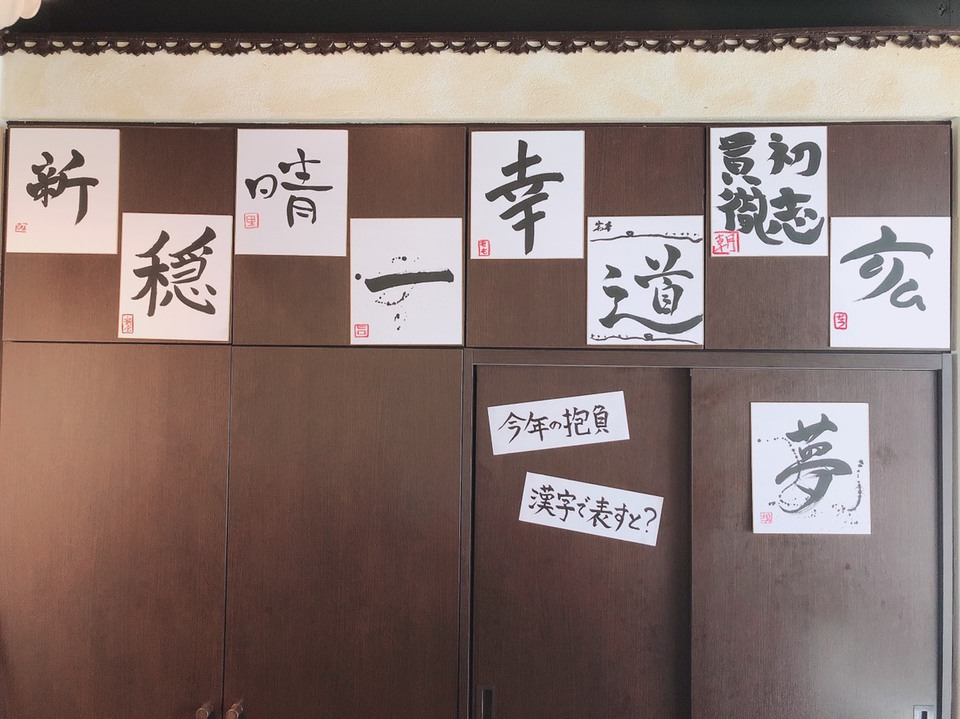 新
穏
晴
一
幸
道
初志
貫徹
今年の抱負
漢字で表すと?
夢